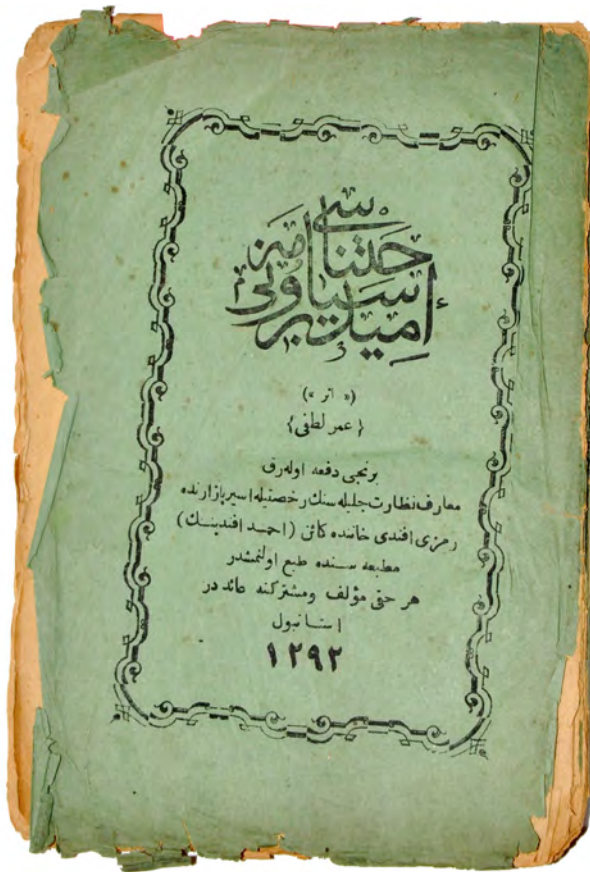 امید برونی سیاحتنامه سی
(« اثر »)
{ عمر لطفی }
برنجی دفعه اوله رق
معارف نظارت جلیله سنك رخصتیله اسیر بازارنده
رمزی افندی خاننده كائن (احمد افندینك)
مطبعه سنده طبع اولنمشدر
هر حقی مؤلف ومشتركنه عائد در
استانبول
١٢٩٢